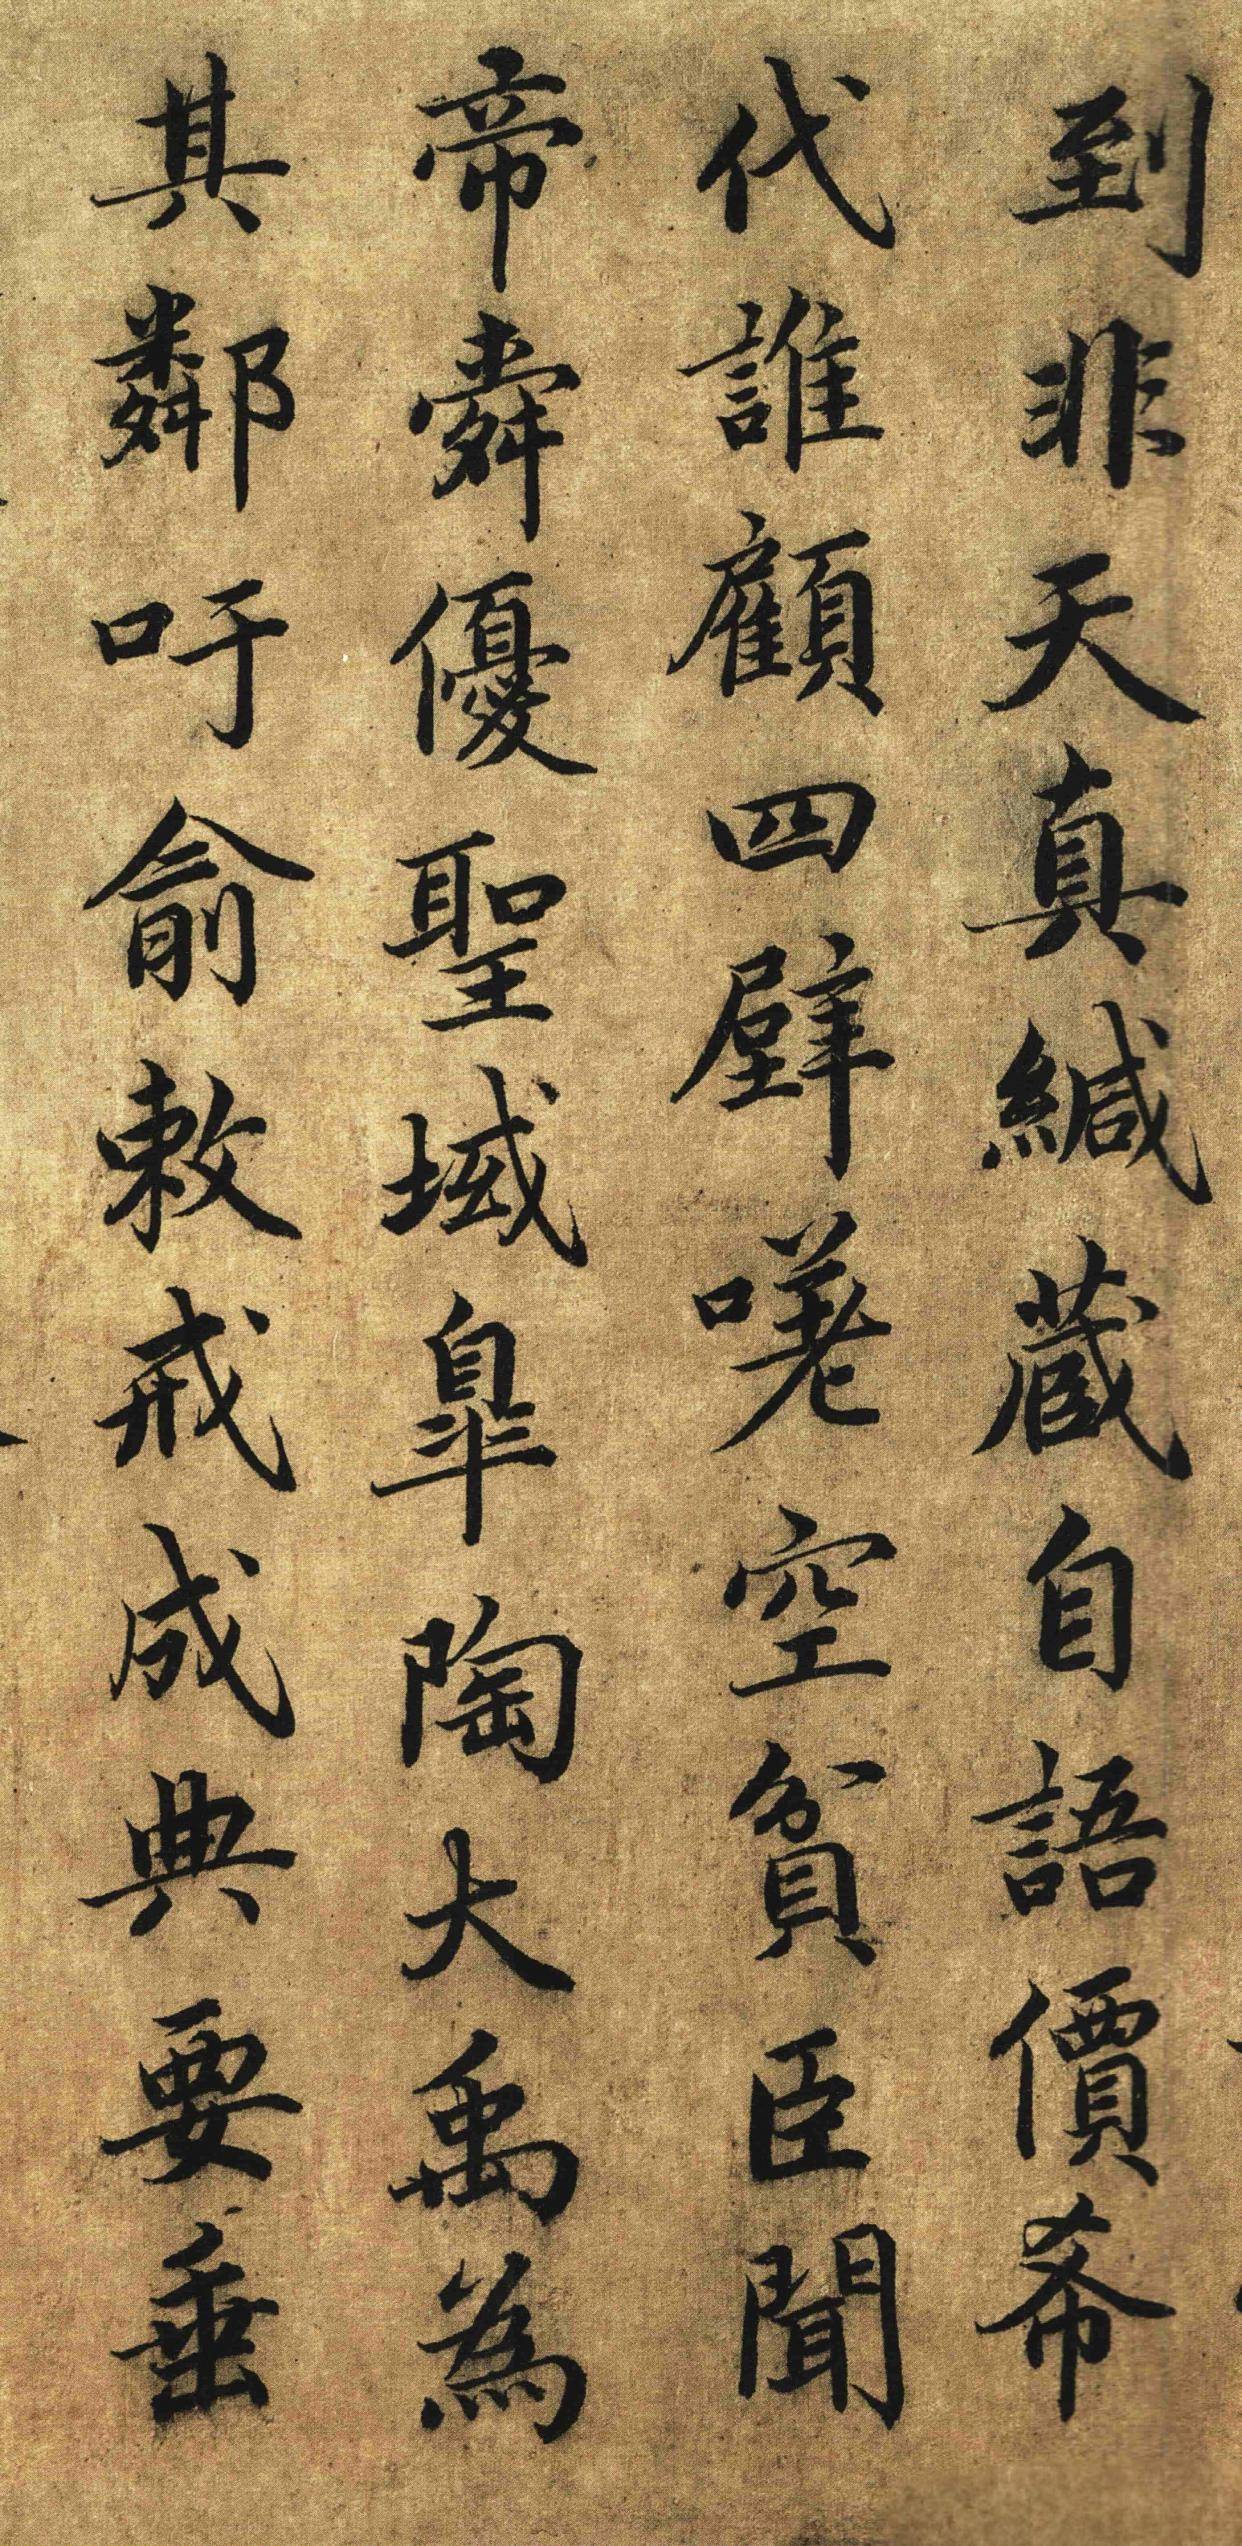 到非天真緘藏自語價希
代誰顧四壁嘆空貧臣聞
帝舜優聖域皐陶大禹為
其鄰吁俞敕戒成典要垂